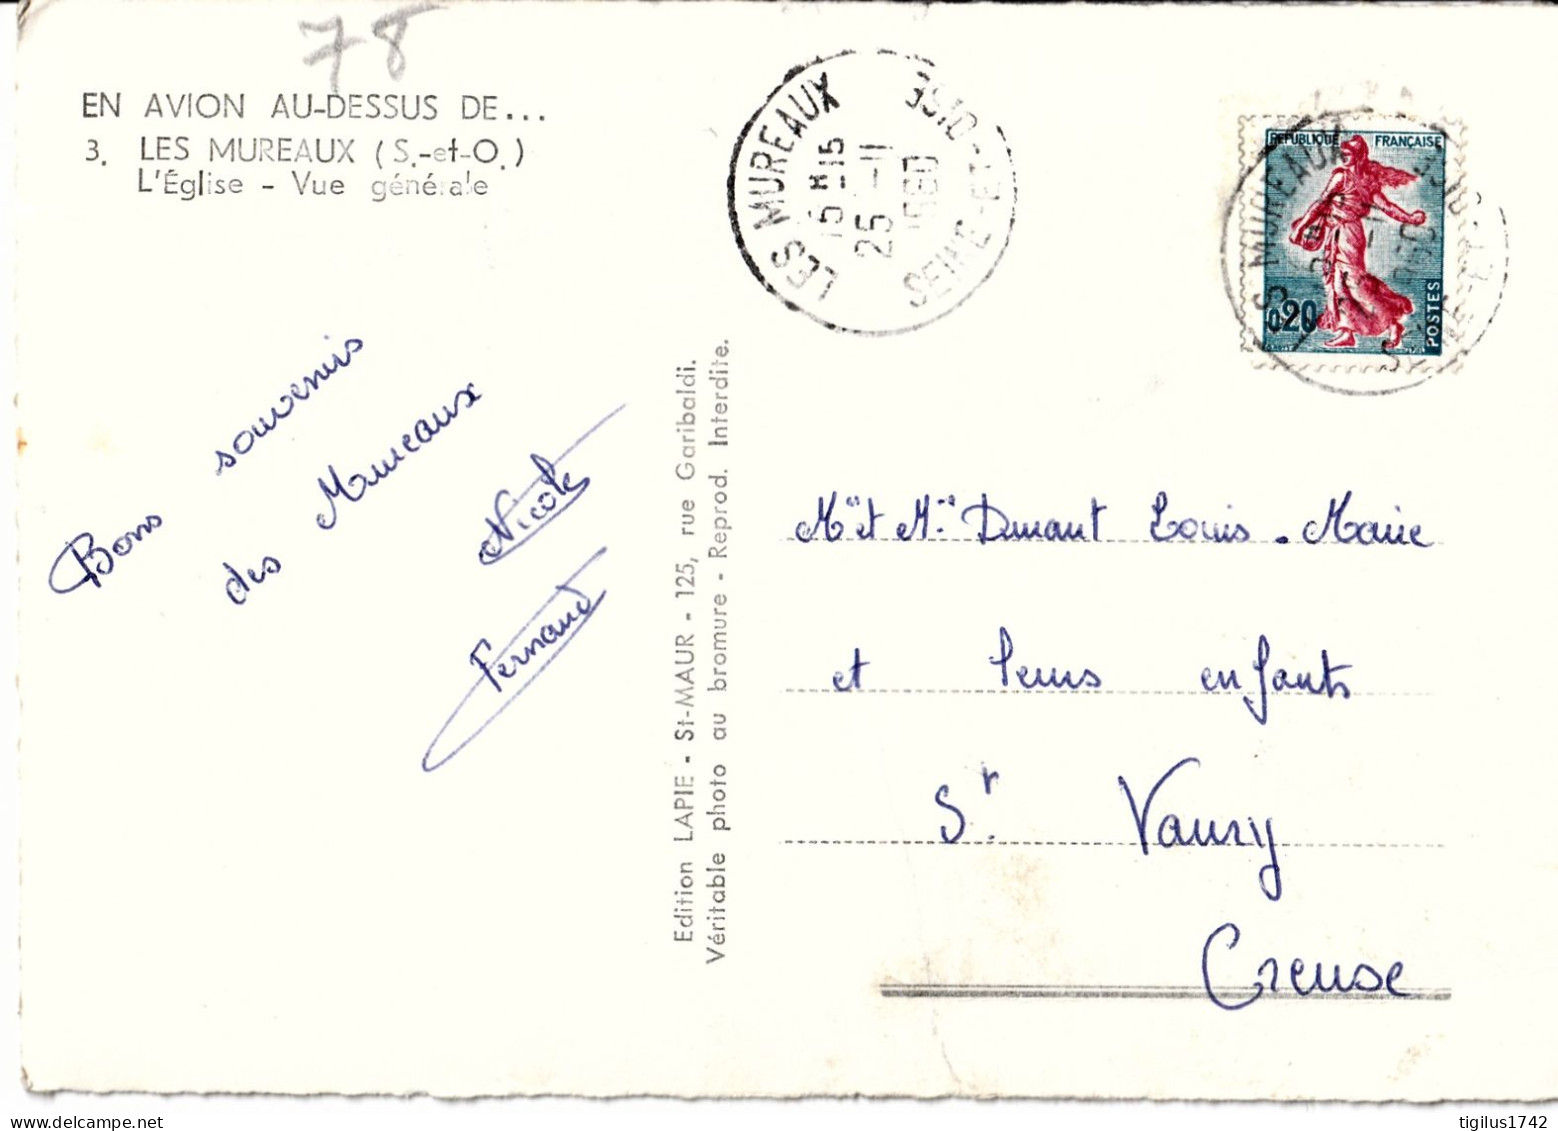 78
EN AVION AU-DESSUS DE...
3. LES MUREAUX (S.-et-O.)
L'Église - Vue générale
LES MUREAUX
SEINE-ET-OISE
15H15
25-11
1960
REPUBLIQUE FRANÇAISE
0,20
POSTES
LES MUREAUX
Bons souvenirs
des Mureaux
Nicole
Fernand
Edition LAPIE - St-MAUR - 125, rue Garibaldi.
Véritable photo au bromure - Reprod. Interdite.
Mr et Mme Durant Louis-Marie
et leurs enfants
St Vaury
Creuse
tigilus1742